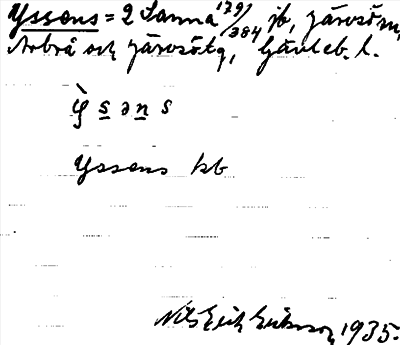 Yssens = 2 Sanna 1791/384 jb, Järvsö sn,
Arbrå och Järvsö tg, Gävleb. l.
ỳ s ə n s
Yssens kb
Nils Erik Eriksson 1935.